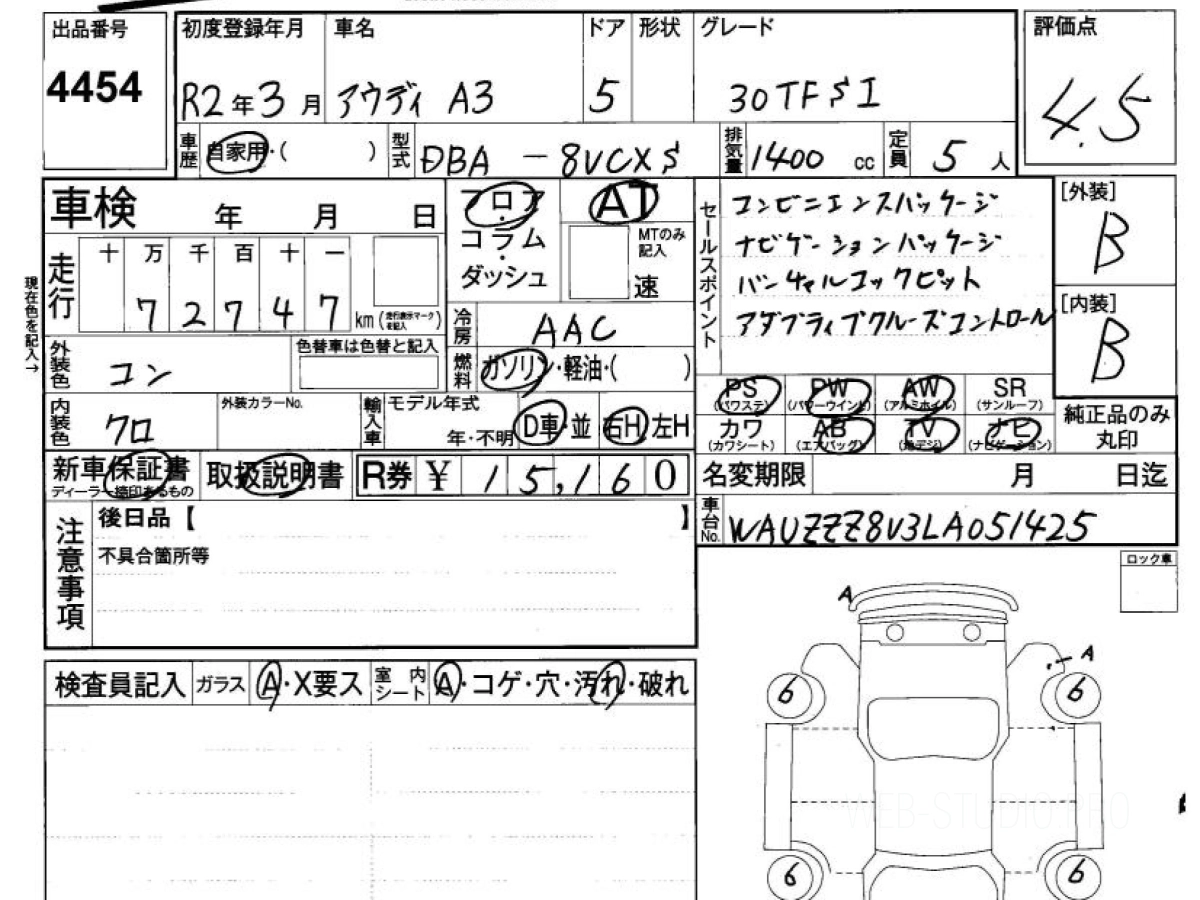 出品番号 初度登録年月 車名 ドア 形状 グレード 評価点
4454 R2年3月 アウディ A3 5 30TFSI 4.5
車歴 自家用・( ) 型式 DBA-8VCXS 排気量 1400cc 定員 5人
車検 年 月 日
フロア・コラム・ダッシュ
AT
MTのみ記入
速
セールスポイント
コンビニエンスパッケージ
ナビゲーションパッケージ
バーチャルコックピット
アダプティブクルーズコントロール
[外装]
B
[内装]
B
現在色を記入→
走行 十 万 千 百 十 一
7 2 7 4 7 km (走行表示マークを記入)
冷房 AAC
外装色 コン 色替車は色替と記入
燃料 ガソリン・軽油・( )
PS (パワステ) PW (パワーウインド) AW (アルミホイル) SR (サンルーフ)
カワ (カワシート) AB (エアバッグ) TV (地デジ) ナビ (ナビゲーション)
純正品のみ丸印
内装色 クロ 外装カラーNo. 輸入車 モデル年式 年・不明 D車・並 右H 左H
新車保証書 ディーラー捺印あるもの 取扱説明書 R券 ¥ 15,160
名変期限 月 日迄
車台No. WAUZZZ8V3LA051425
注意事項
後日品【 】
不具合箇所等
ロック車
A
A
検査員記入 ガラス A・X要ス 室内シート A・コゲ・穴・汚れ・破れ
6 6
WEB-STUDIO.PRO
6 6